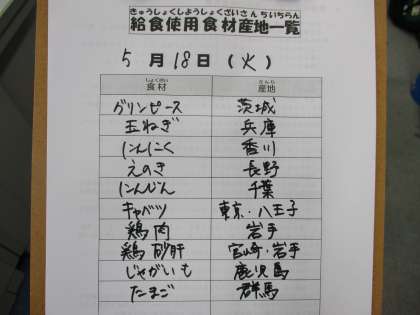 きゅうしょくしようしょくざいさんちいちらん
給食使用食材産地一覧
5月18日(火)
しょくざい さんち
食材 産地
グリンピース 茨城
玉ねぎ 兵庫
にんにく 香川
えのき 長野
にんじん 千葉
キャベツ 東京・八王子
鶏肉 岩手
鶏砂肝 宮崎・岩手
じゃがいも 鹿児島
たまご 群馬